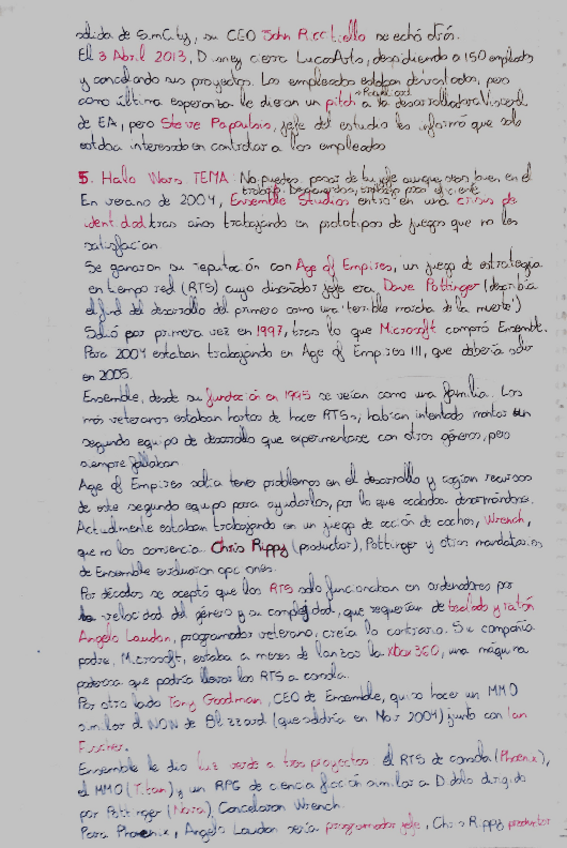 salida de SimCity, su CEO John Riccitiello se echó atrás.
El 3 Abril 2013, Disney cierra LucasArts, despidiendo a 150 empleados
y cancelando sus proyectos. Los empleados estaban devastados, pero
como última esperanza le dieron un pitch a la desarrolladora Visceral
de EA, pero Steve Papoutsis, jefe del estudio les informó que solo
estaba interesado en contratar a los empleados
5. Halo Wars. TEMA: No puedes pasar de tu jefe aunque seas buen en el
trabajo.
En verano de 2004, Ensemble Studios entró en una crisis de
identidad tras años trabajando en prototipos de juegos que no les
satisfacían.
Se ganaron su reputación con Age of Empires, un juego de estrategia
en tiempo real (RTS) cuyo diseñador jefe era Dave Pottinger (describía
el final del desarrollo del primero como una "terrible marcha de la muerte")
Salió por primera vez en 1997, tras lo que Microsoft compró Ensemble.
Para 2004 estaban trabajando en Age of Empires III, que debería salir
en 2005.
Ensemble, desde su fundación en 1995 se veían como una familia. Los
más veteranos estaban hartos de hacer RTSs, habían intentado montar un
segundo equipo de desarrollo que experimentase con otros géneros, pero
siempre fallaban
Age of Empires solía tener problemas en el desarrollo y cogían recursos
de este segundo equipo para ayudarlos, por lo que acababa desarmándose.
Actualmente estaban trabajando en un juego de acción de coches, Wrench,
que no los convencía. Chris Rippy (productor), Pottinger y otros mandatarios
de Ensemble evaluaron opciones.
Por décadas se aceptó que los RTS solo funcionaban en ordenadores por
la velocidad del género y su complejidad, que requerían de teclado y ratón
Angelo Laudon, programador veterano, creía lo contrario. Su compañía
padre, Microsoft, estaba a meses de lanzar la Xbox 360, una máquina
poderosa que podría llevar los RTS a consola.
Por otro lado Tony Goodman, CEO de Ensemble, quiso hacer un MMO
similar al WOW de Blizzard (que saldría en Nov 2004) junto con Ian
Fischer.
Ensemble le dio luz verde a tres proyectos el RTS de consola (Phoenix),
el MMO (Titan) y un RPG de ciencia ficción similar a Diablo dirigido
por Pottinger (Nova). Cancelaron Wrench.
Para Phoenix, Angelo Laudon sería programador jefe, Chris Rippy productor